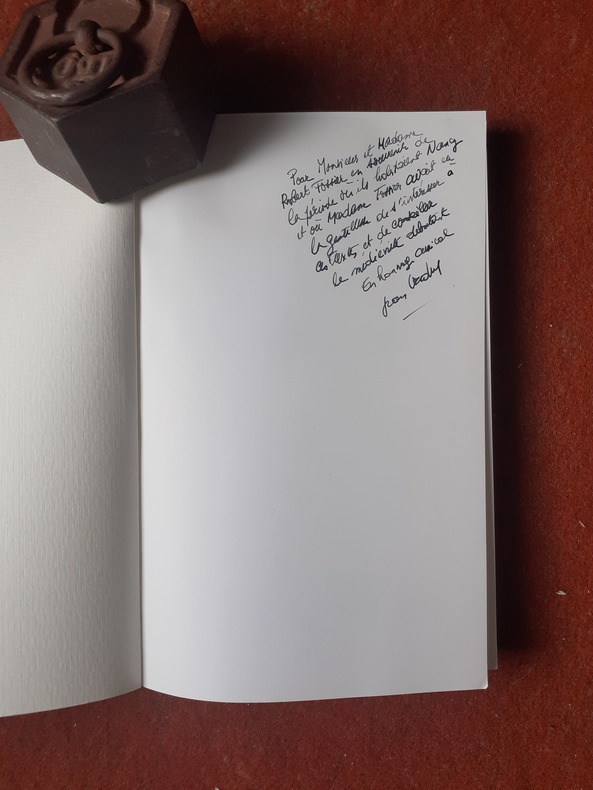 Pour Monsieur et Madame
Robert Fossier en souvenir de
la période où ils habitaient Nancy
et où Madame Fossier avait eu
la gentillesse de s'intéresser à
ces textes et de conseiller
le médiéviste débutant
En hommage amical
Jean